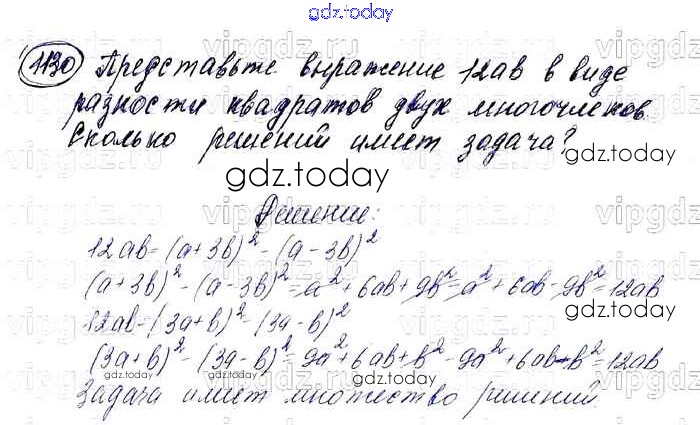 gdz.today
1130 Представьте выражение 12ab в виде
разности квадратов двух многочленов.
Сколько решений имеет задача?
gdz.today
gdz.today
Решение:
12ab=(a+3b)²-(a-3b)²
(a+3b)²-(a-3b)²=a²+6ab+9b²-a²+6ab-9b²=12ab
gdz.today
12ab=(3a+b)²-(3a-b)²
(3a+b)²-(3a-b)²=9a²+6ab+b²-9a²+6ab-b²=12ab
gdz.today gdz.today gdz.today
Задача имеет множество решений.